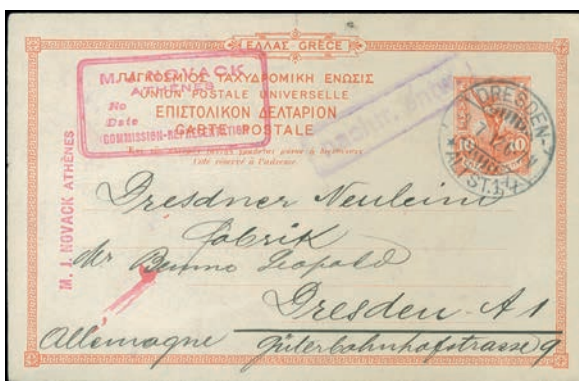 ΕΛΛΑΣ GRÈCE
ΠΑΓΚΟΣΜΙΟΣ ΤΑΧΥΔΡΟΜΙΚΗ ΕΝΩΣΙΣ
UNION POSTALE UNIVERSELLE
ΕΠΙΣΤΟΛΙΚΟΝ ΔΕΛΤΑΡΙΟΝ
CARTE POSTALE
Côté réservé à l'adresse.
M. J. NOVACK
ATHÈNES
No
Date
COMMISSION-REPRÉSENTATION
M. J. NOVACK ATHÈNES
DRESDEN-
ALTST.
10 10
Dresdner Neuleim
Fabrik
Mr Benno Leopold
Dresden-A 1
Allemagne Güterbahnhofstrasse 9